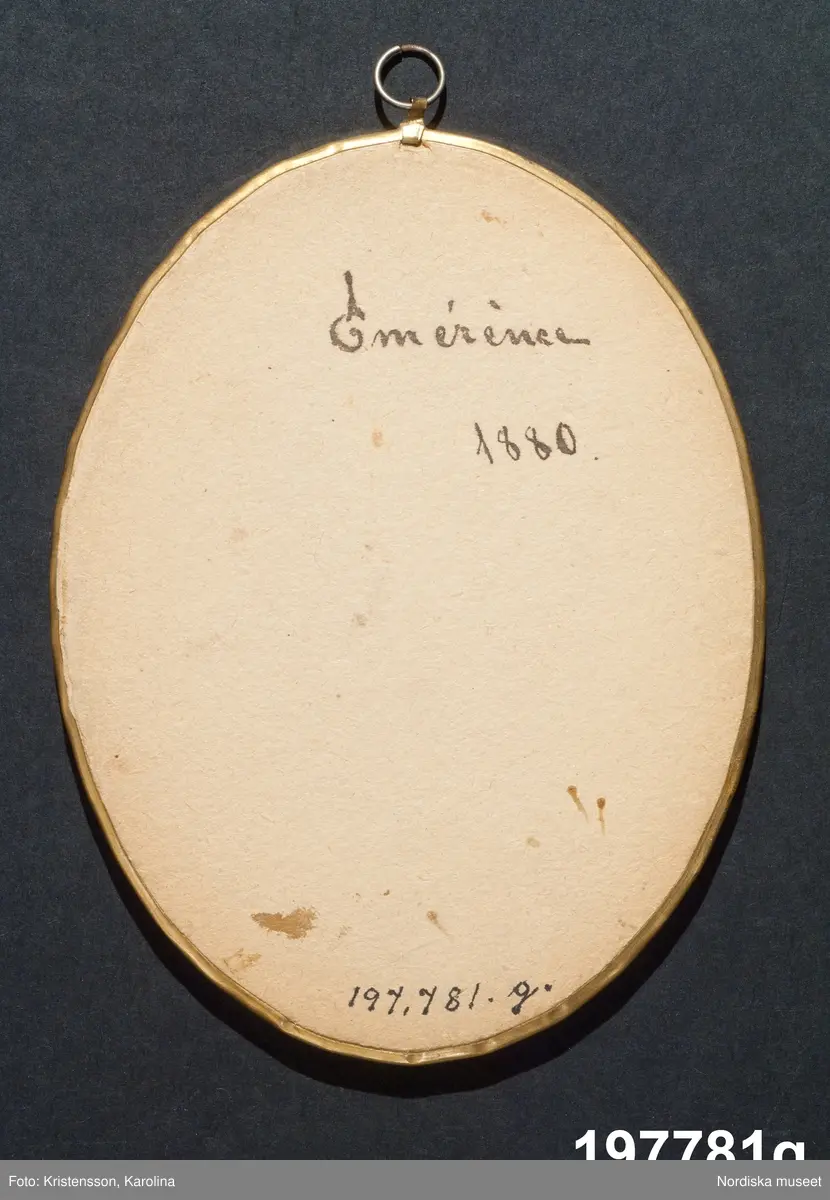 Emérènce
1880.
197,781. g.
197781g
Foto: Kristensson, Karolina
Nordiska museet